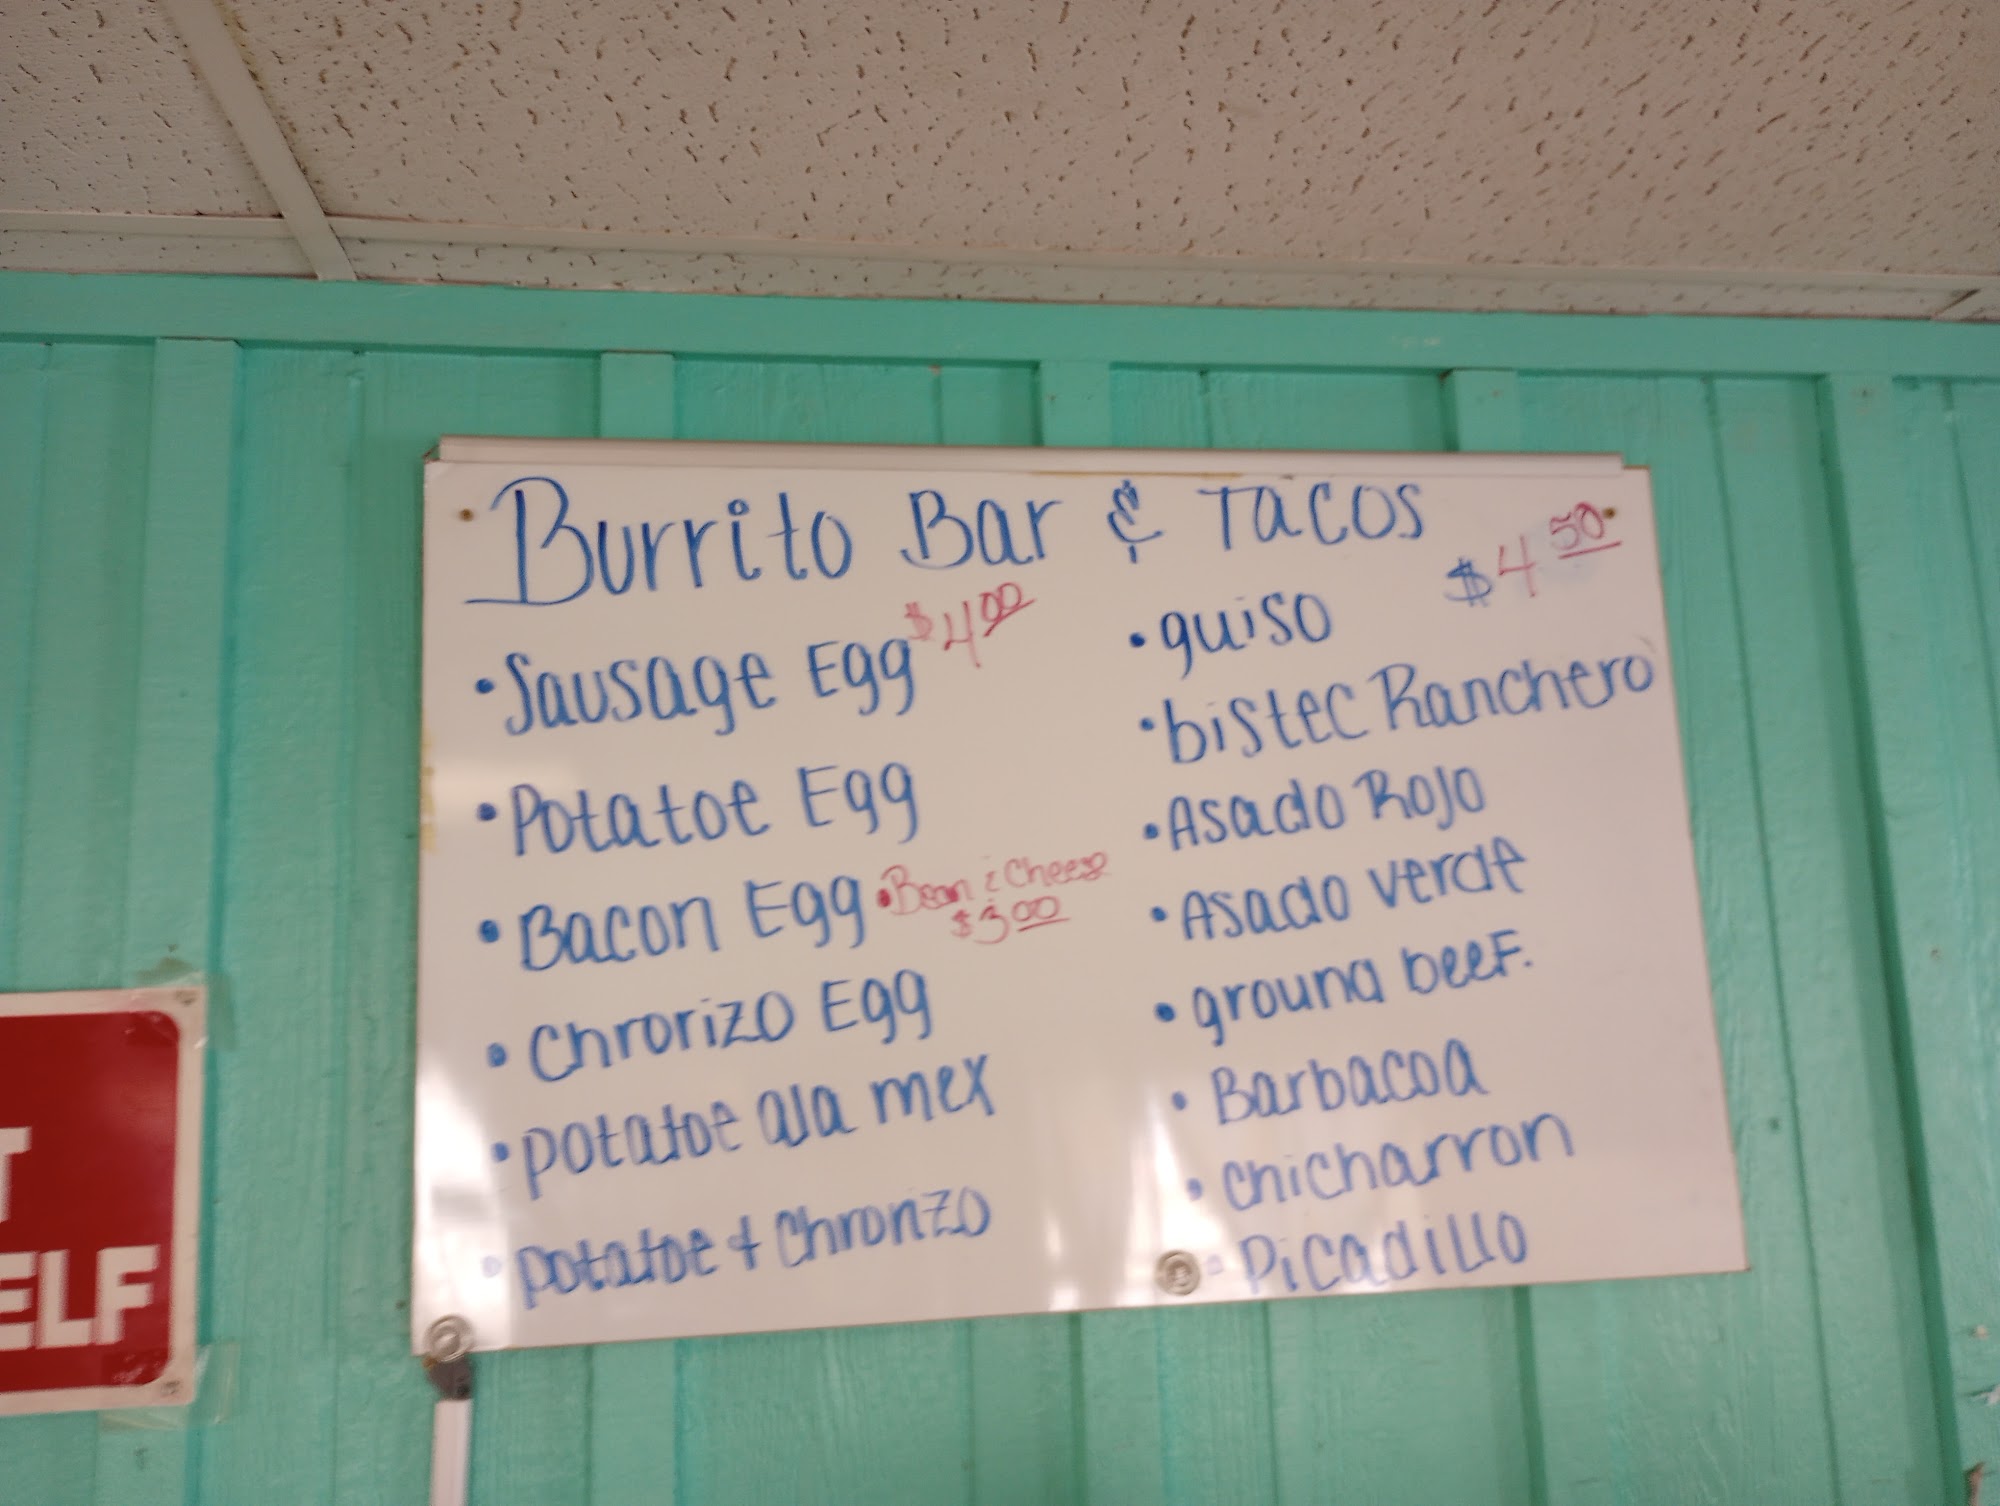 Burrito Bar & Tacos
$4.00
• Sausage Egg
• Potatoe Egg
• Bacon Egg
• Bean & Cheese
$3.00
• Chrorizo Egg
• potatoe ala mex
• potatoe + Chronizo
$4.50
• guiso
• bistec Ranchero
• Asado Rojo
• Asado verde
• ground beef.
• Barbacoa
• chicharron
• Picadillo
T
ELF